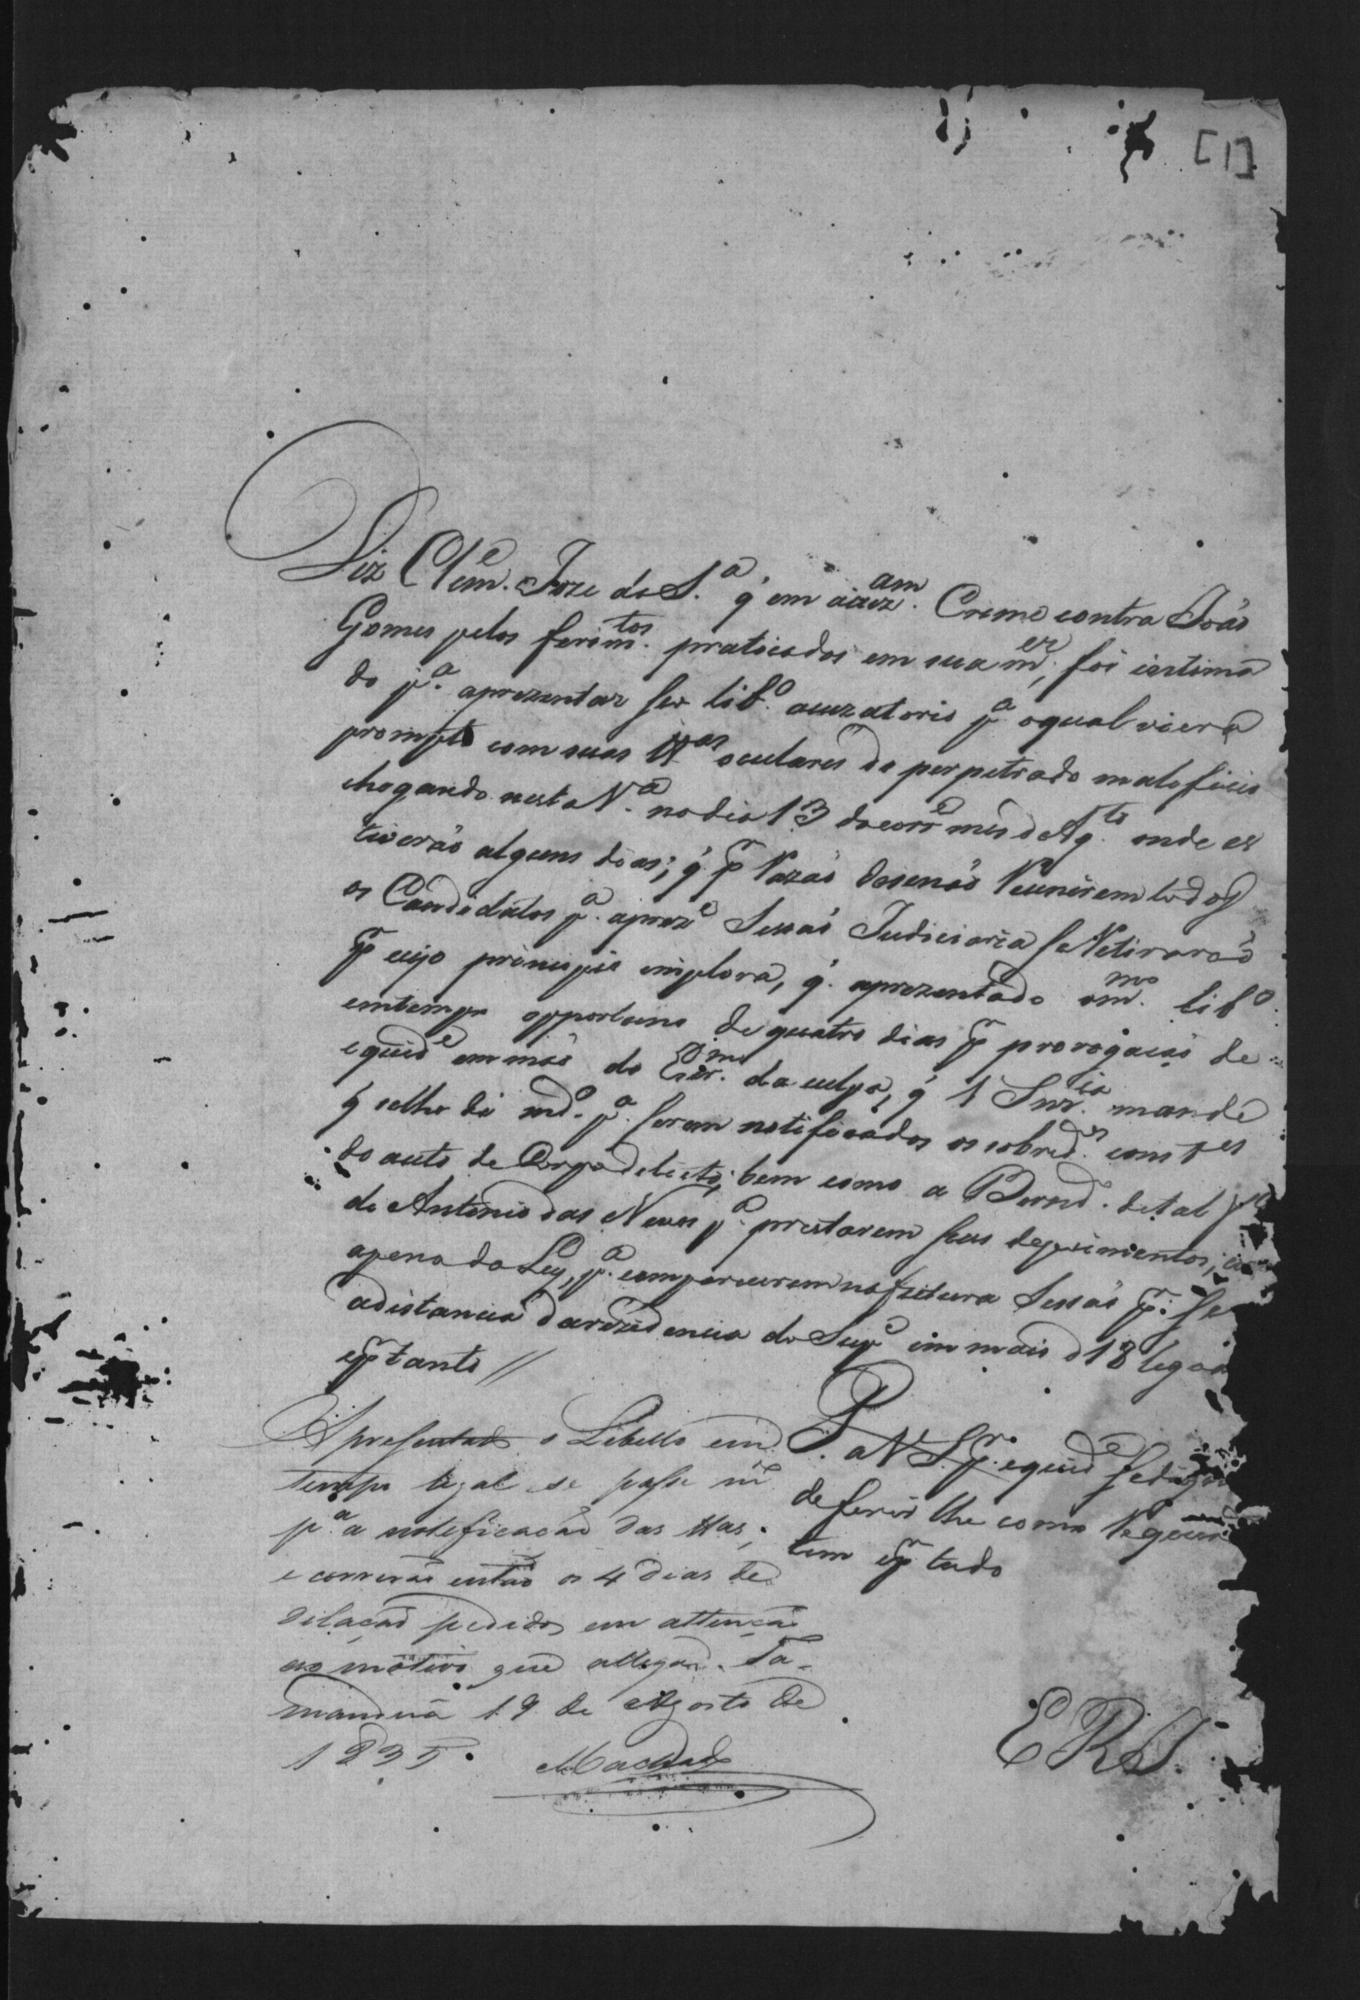 [1]
Diz Clem.e Joze da S.a q' em acuz.am Crime contra Joaõ
Gomes pelos ferim.tos praticados em sua m.er, foi intima
do p.a aprezentar seu lib.o acuzatorio p.a oqual viera
prompto com suas tt.as oculares do perpetrado maleficio
chegando nesta V.a no dia 13 do corr.e mes d'Ag.to onde es
tiverão alguns dias; q' p.r razaõ dese naõ Reunirem todos
os Candidatos p.a a prez.e Sessaõ Judiciaria se Retiraraõ
p.r cujo principio implora, q'. aprezentado o m.mo lib.o
em tempo opportuno de quatro dias p.r prorogaçaõ de
equid.e em maõ do Escr.am da culpa, q' V Snr.ia mande
q selhe dê md.o p.a serem notificados os sobred.os const.es
do auto de Corpo delicto, bem como a Bernd.a de tal
de Antonio das Neves p.a prestarem seus depoimentos,
apena da Ley, p.a comparecerem na futura Sessaõ p.r se
adistancia d'arezidencia do Sup.e em mais d 18 legoa
e p.r tanto //
P. a V S.r p.r equid.e se digne
deferir lhe como Requer
tem e p.r tudo
E R J.
Apresentado o Libello em
tempo legal se passe m.e
p.a a notificação das ttas,
e correrão então os 4 dias de
dilação pedidos em attenção
ao motivo que allega. Ta-
manduá 19 de Agosto de
1835. Machado